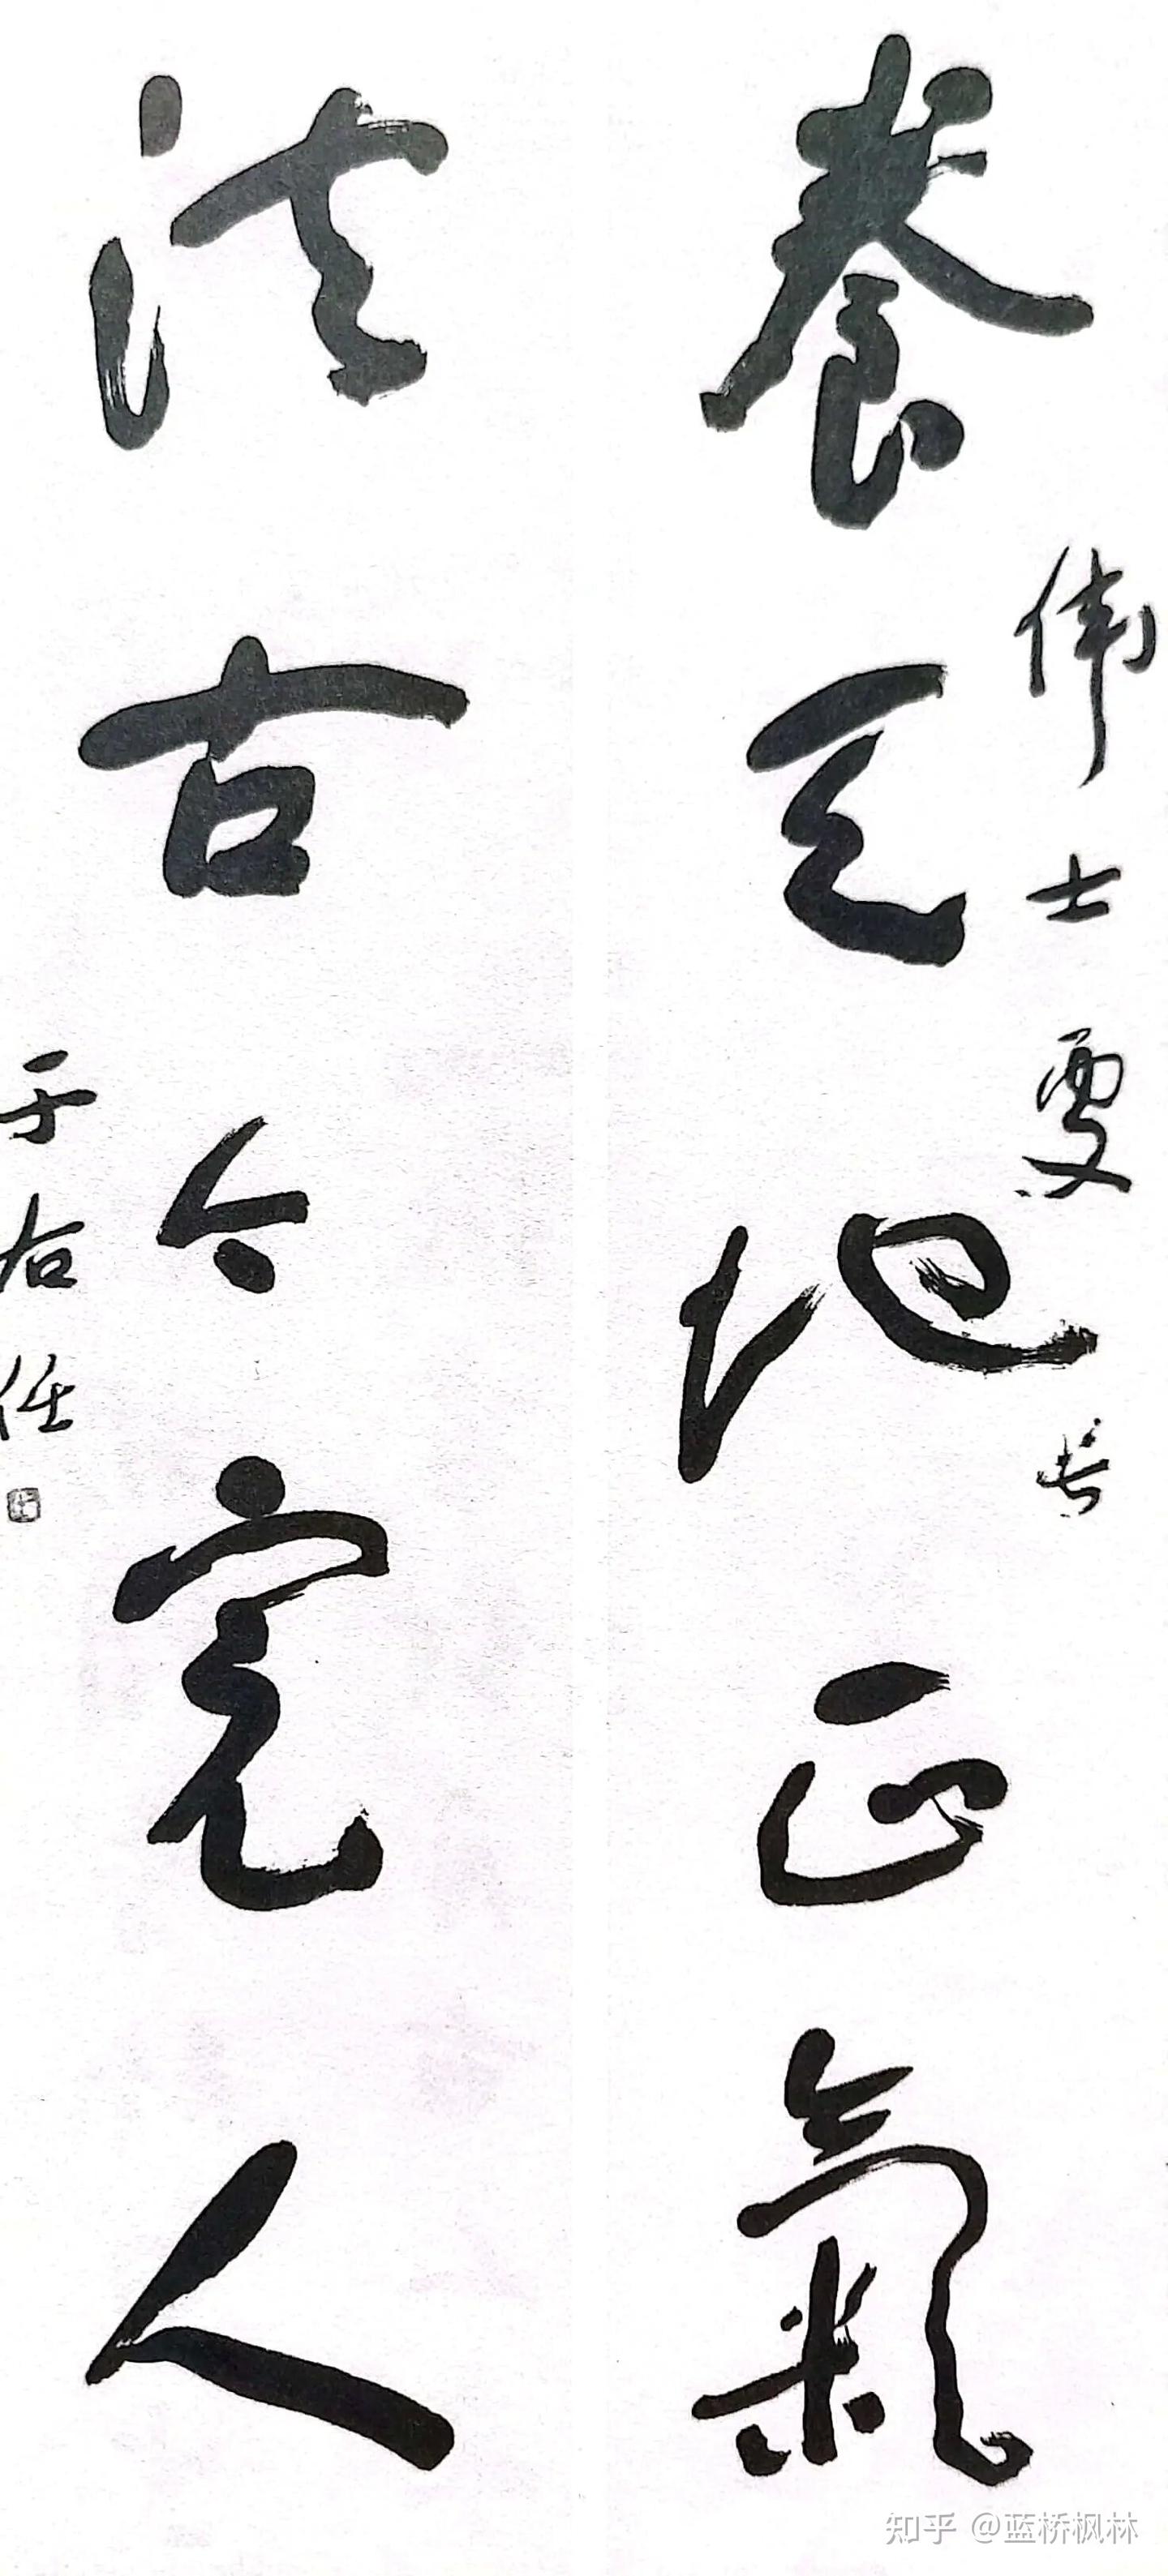 養天地正氣
偉士處長
法古今完人
于右任
知乎 @蓝桥枫林